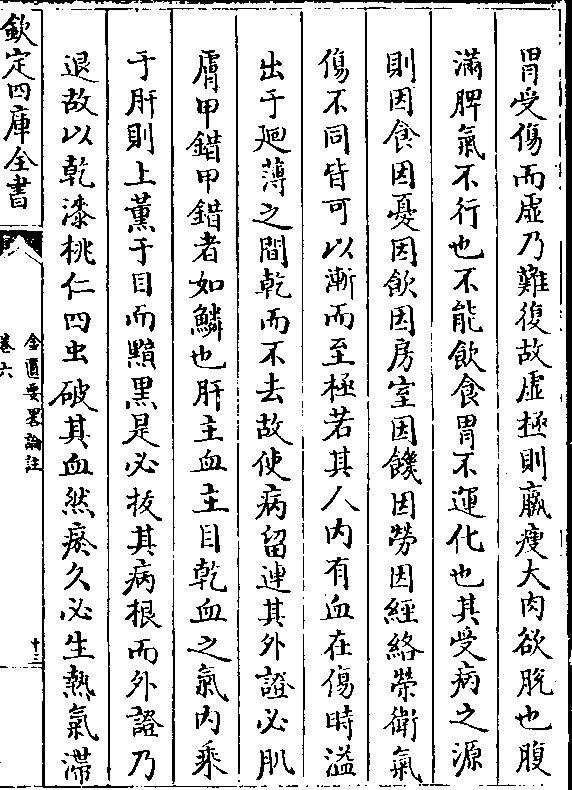 胃受傷而虛乃難復故虛極則羸瘦大肉欲脫也腹
滿脾氣不行也不能飲食胃不運化也其受病之源
則因食因憂因飲因房室因饑因勞因經絡榮衛氣
傷不同皆可以漸而至極若其人內有血在傷時溢
出于廻薄之間乾而不去故使病留連其外證必肌
膚甲錯甲錯者如鱗也肝主血主目乾血之氣內乘
于肝則上薰于目而黯黑是必抜其病根而外證乃
退故以乾漆桃仁四虫破其血然瘀久必生熱氣滯
欽定四庫全書
金匱要畧論註
卷六
十三